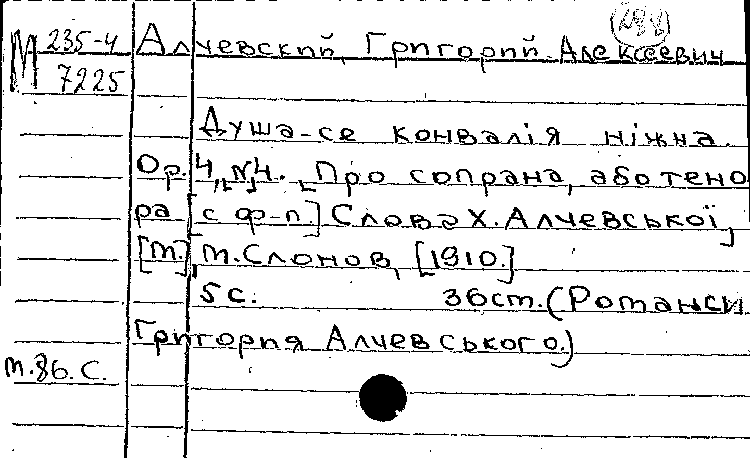 (288)
М 235-4
7225
Алчевский, Григорий Алексеевич
Душа-се конвалія ніжна.
Ор. 4, №4. Про сопрана, або тено
ра [с ф-п.] Слова Х. Алчевської,
[М.], М. Слонов, [1910.]
5 с. 36 ст. (Романси
Григорія Алчевського.)
м. 86. С.